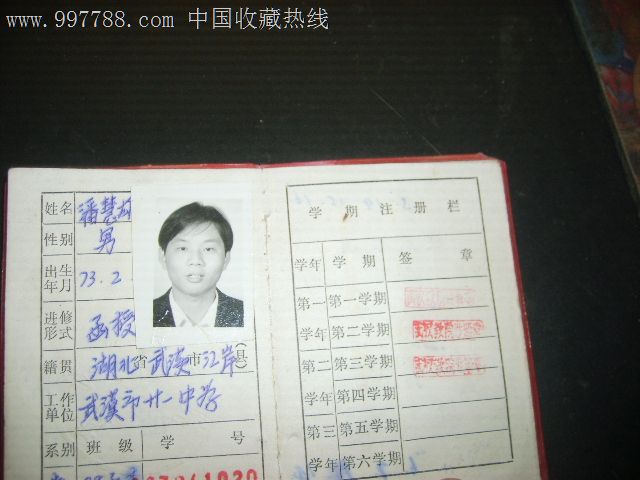 www.997788.com 中国收藏热线
姓名 潘慧
性别 男
出生年月 73.2
进修形式 函授
籍贯 湖北省武汉市江岸(县
工作单位 武汉市廿一中学
系别 班级 学号
学期注册栏
学年 学期 签章
第一 第一学期
学年 第二学期
第二 第三学期
学年 第四学期
第三 第五学期
学年 第六学期